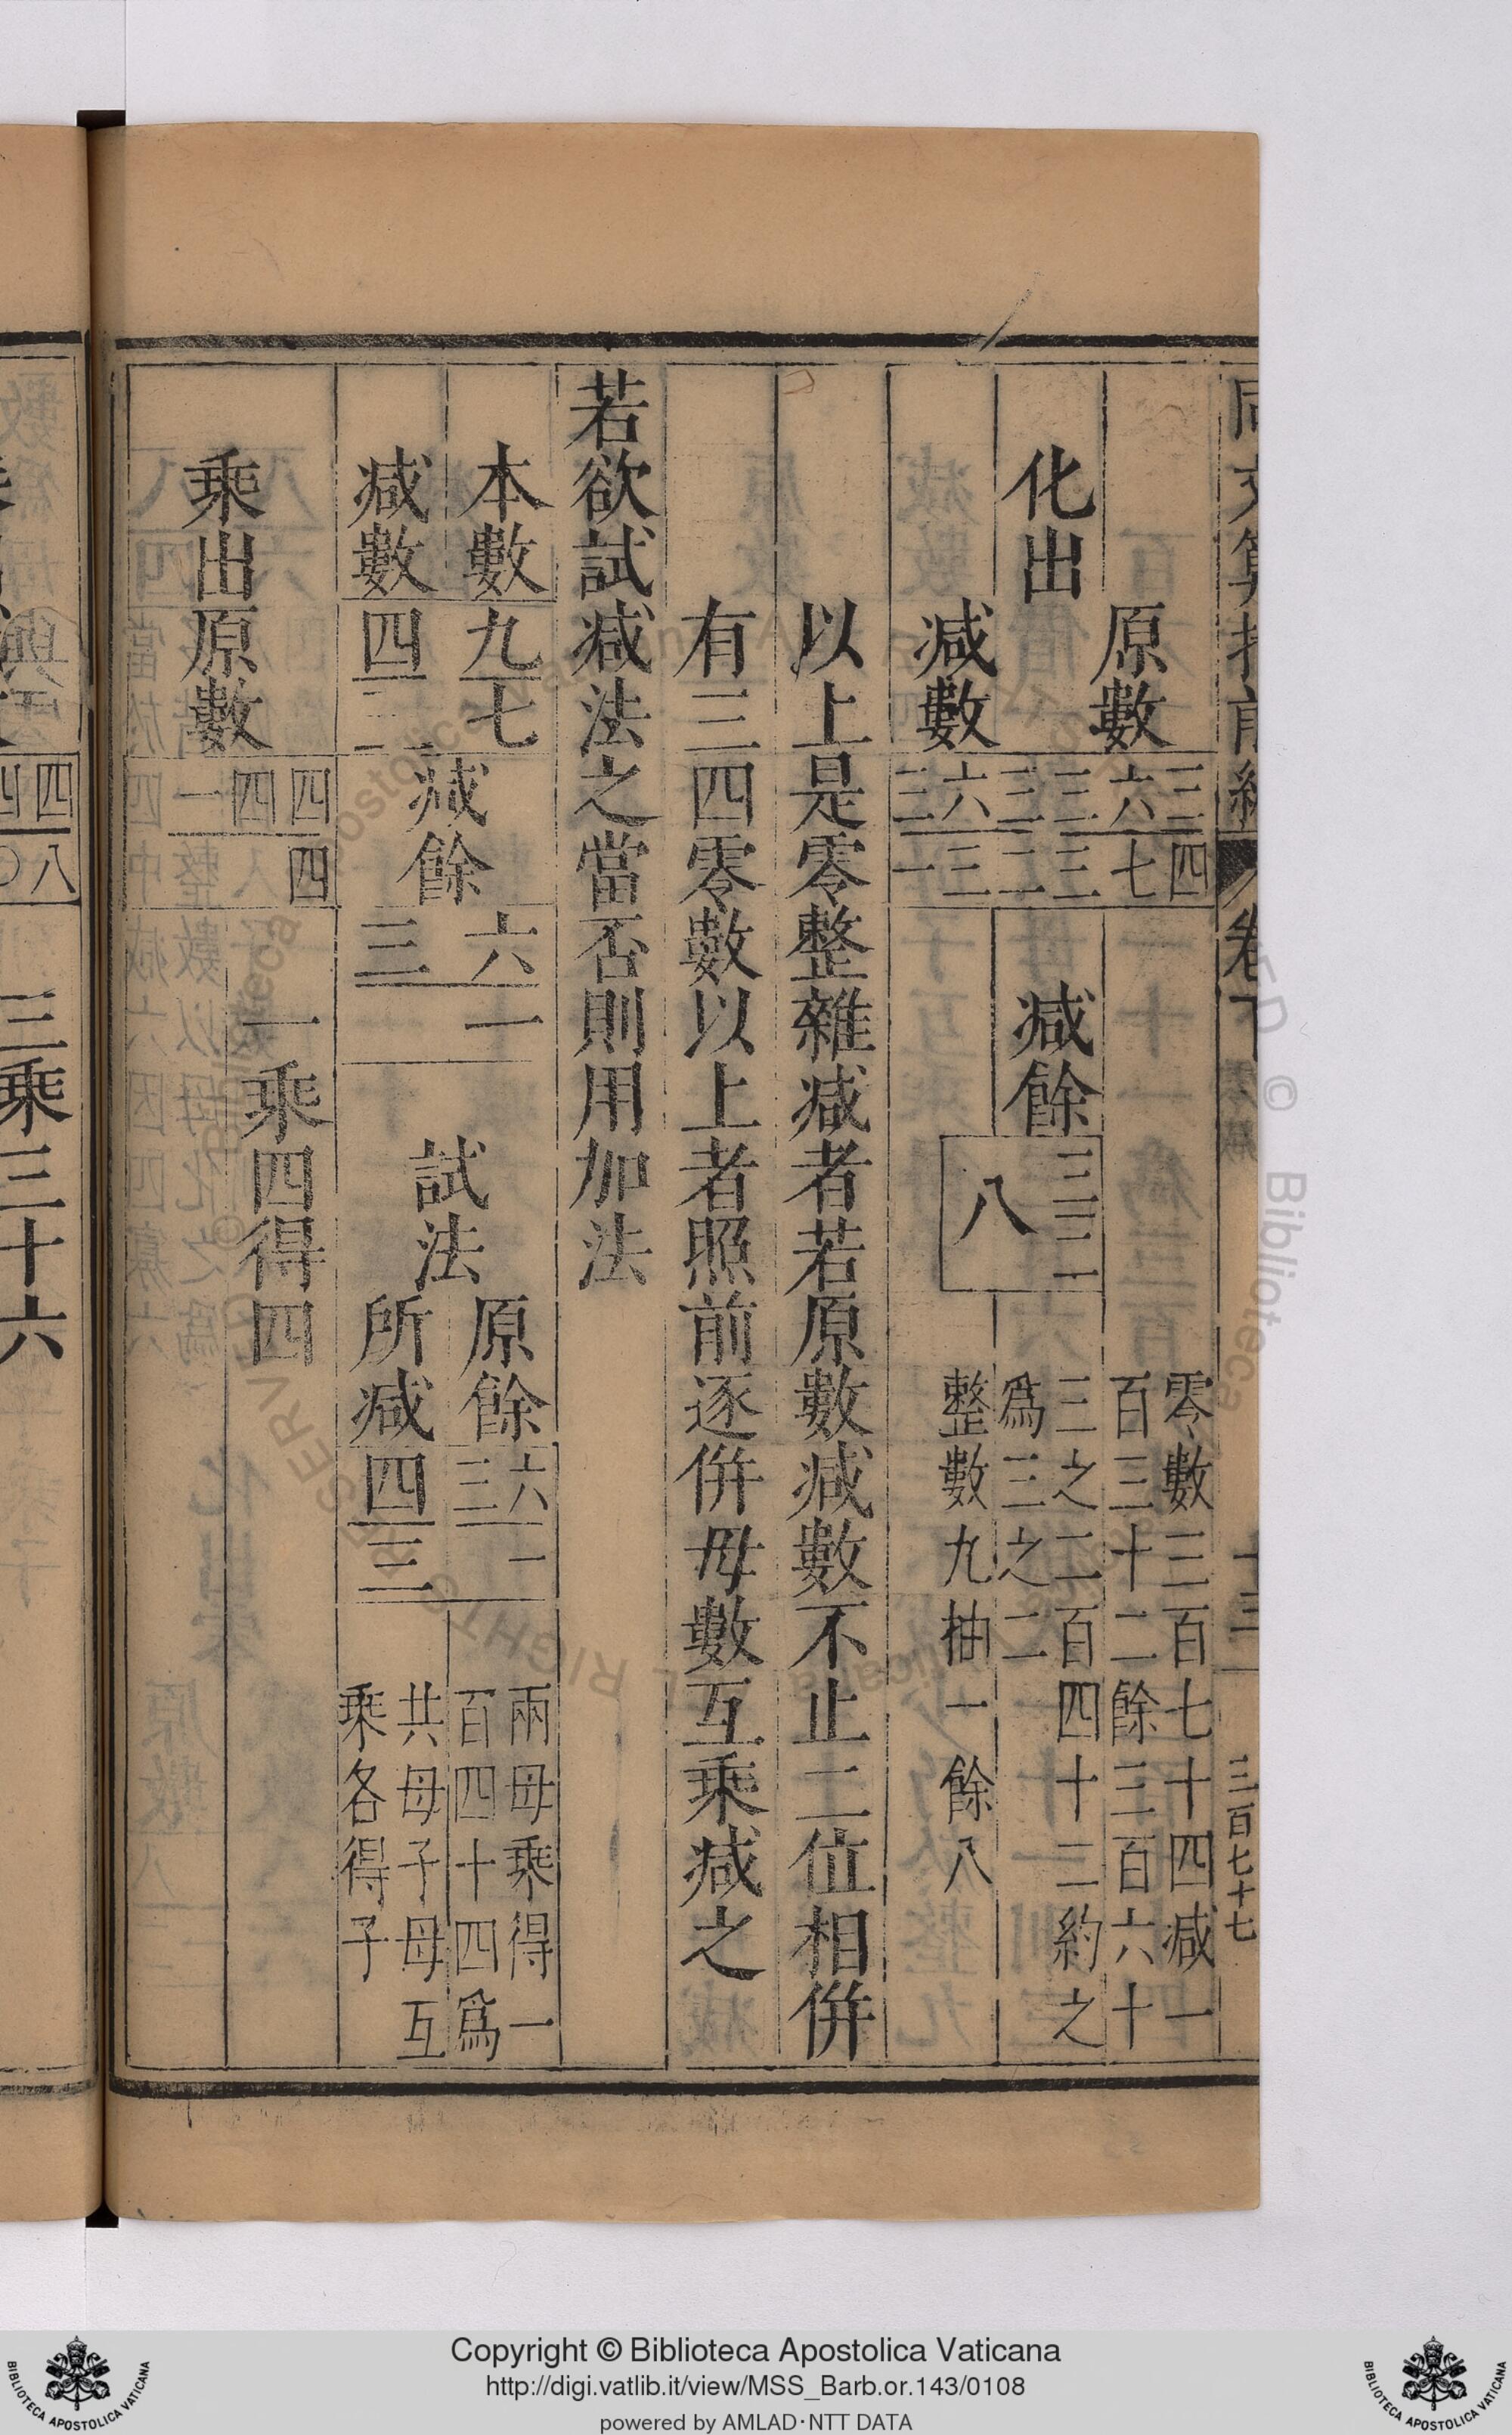 同文算指前編
卷下
十三
三百七十七
原數
三六三
四七三
化出
減數
三六三
二三一
減餘
三二
八
零數三百七十四減一
百三十二餘三百六十
三之二百四十二約之
爲三之二
整數九抽一餘八
以上是零整雜減者若原數減數不止二位相併
有三四零數以上者照前逐併母數互乘減之
若欲試減法之當否則用加法
本數九七
減數四三
減餘
六三
一
試法
原餘
六三
一
所減四三
兩母乘得一
百四十四爲
共母子母互
乘各得子
乘出原數
四四一
四
一乘四得四
四八
四〇
三乘三十六
Copyright © Biblioteca Apostolica Vaticana
http://digi.vatlib.it/view/MSS_Barb.or.143/0108
powered by AMLAD·NTT DATA
BIBLIOTECA APOSTOLICA VATICANA
BIBLIOTECA APOSTOLICA VATICANA